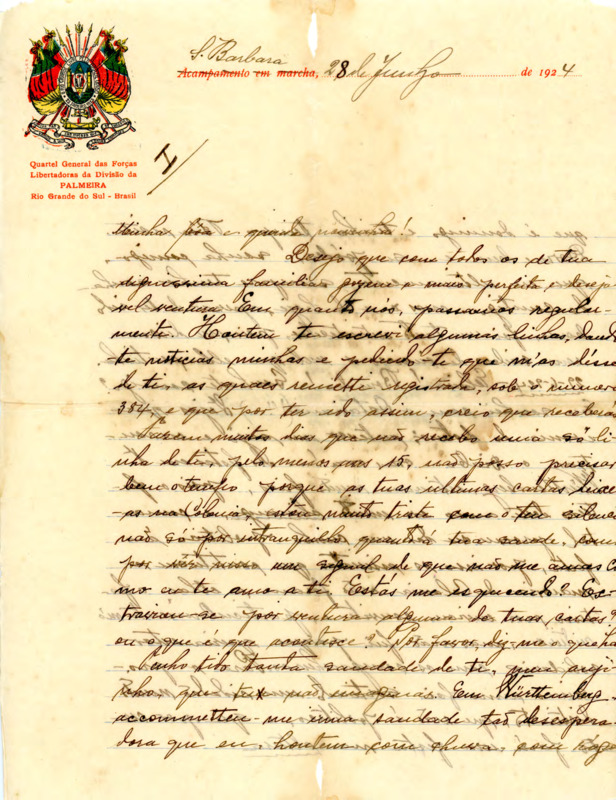 S. Barbara
Acampamento em marcha, 28 de Junho de 1924
Quartel General das Forças
Libertadoras da Divisão da
PALMEIRA
Rio Grande do Sul - Brasil
I/
Minha bôa e querida noivinha!
Desejo que com todos os de tua
dignissima familia gozem a mais perfeita e desejavel
ventura. Em quanto nós, passamos regularmente.
Hontem te escrevi algumas linhas, dando-
te noticias minhas e pedindo-te que m'as désse
de ti, as quaes remetti registrada, sob o numero
384, e que por ter ido assim, creio que receberás
Fazem muitos dias que não recebo uma só li-
nha de ti, pelo menos uns 15, não posso precisar
bem o tempo, porque as tuas ultimas cartas
na Colonia, estou muito triste com o teu silencio
não só por intranquillo quanto a tua saude, como
por vêr nisso um signal de que não me âmas co-
mo eu te amo a ti. Estás me esquecendo? Ex-
traviou-se por ventura alguma de tuas cartas?
ou o que é que acontece? Por favor, diz-me o que ha
Tenho tido tanta saudade de ti, meu anji-
nho, que tu não imaginas. Em Württemberg
accommetteu-me uma saudade tão desespera-
dora que eu, hontem com chuva, com